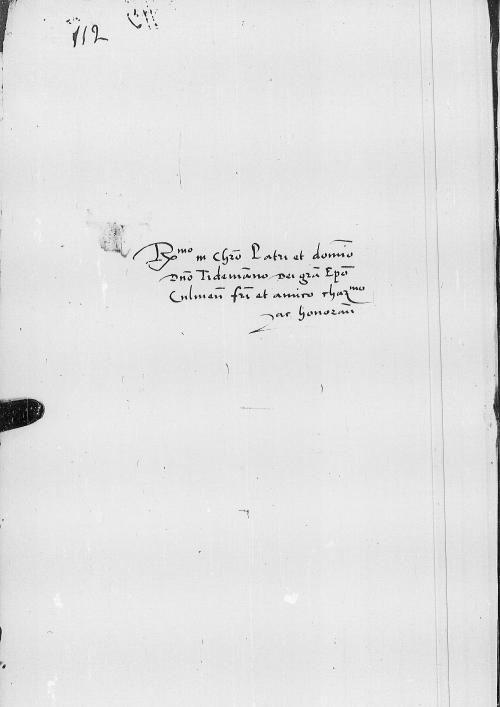 112
Rx̄mo in Chrō Patri et domīo
Dnō Tidemāno Dei grā Epō
Culmeñ fr̄i et amico charmo
ac honorañ